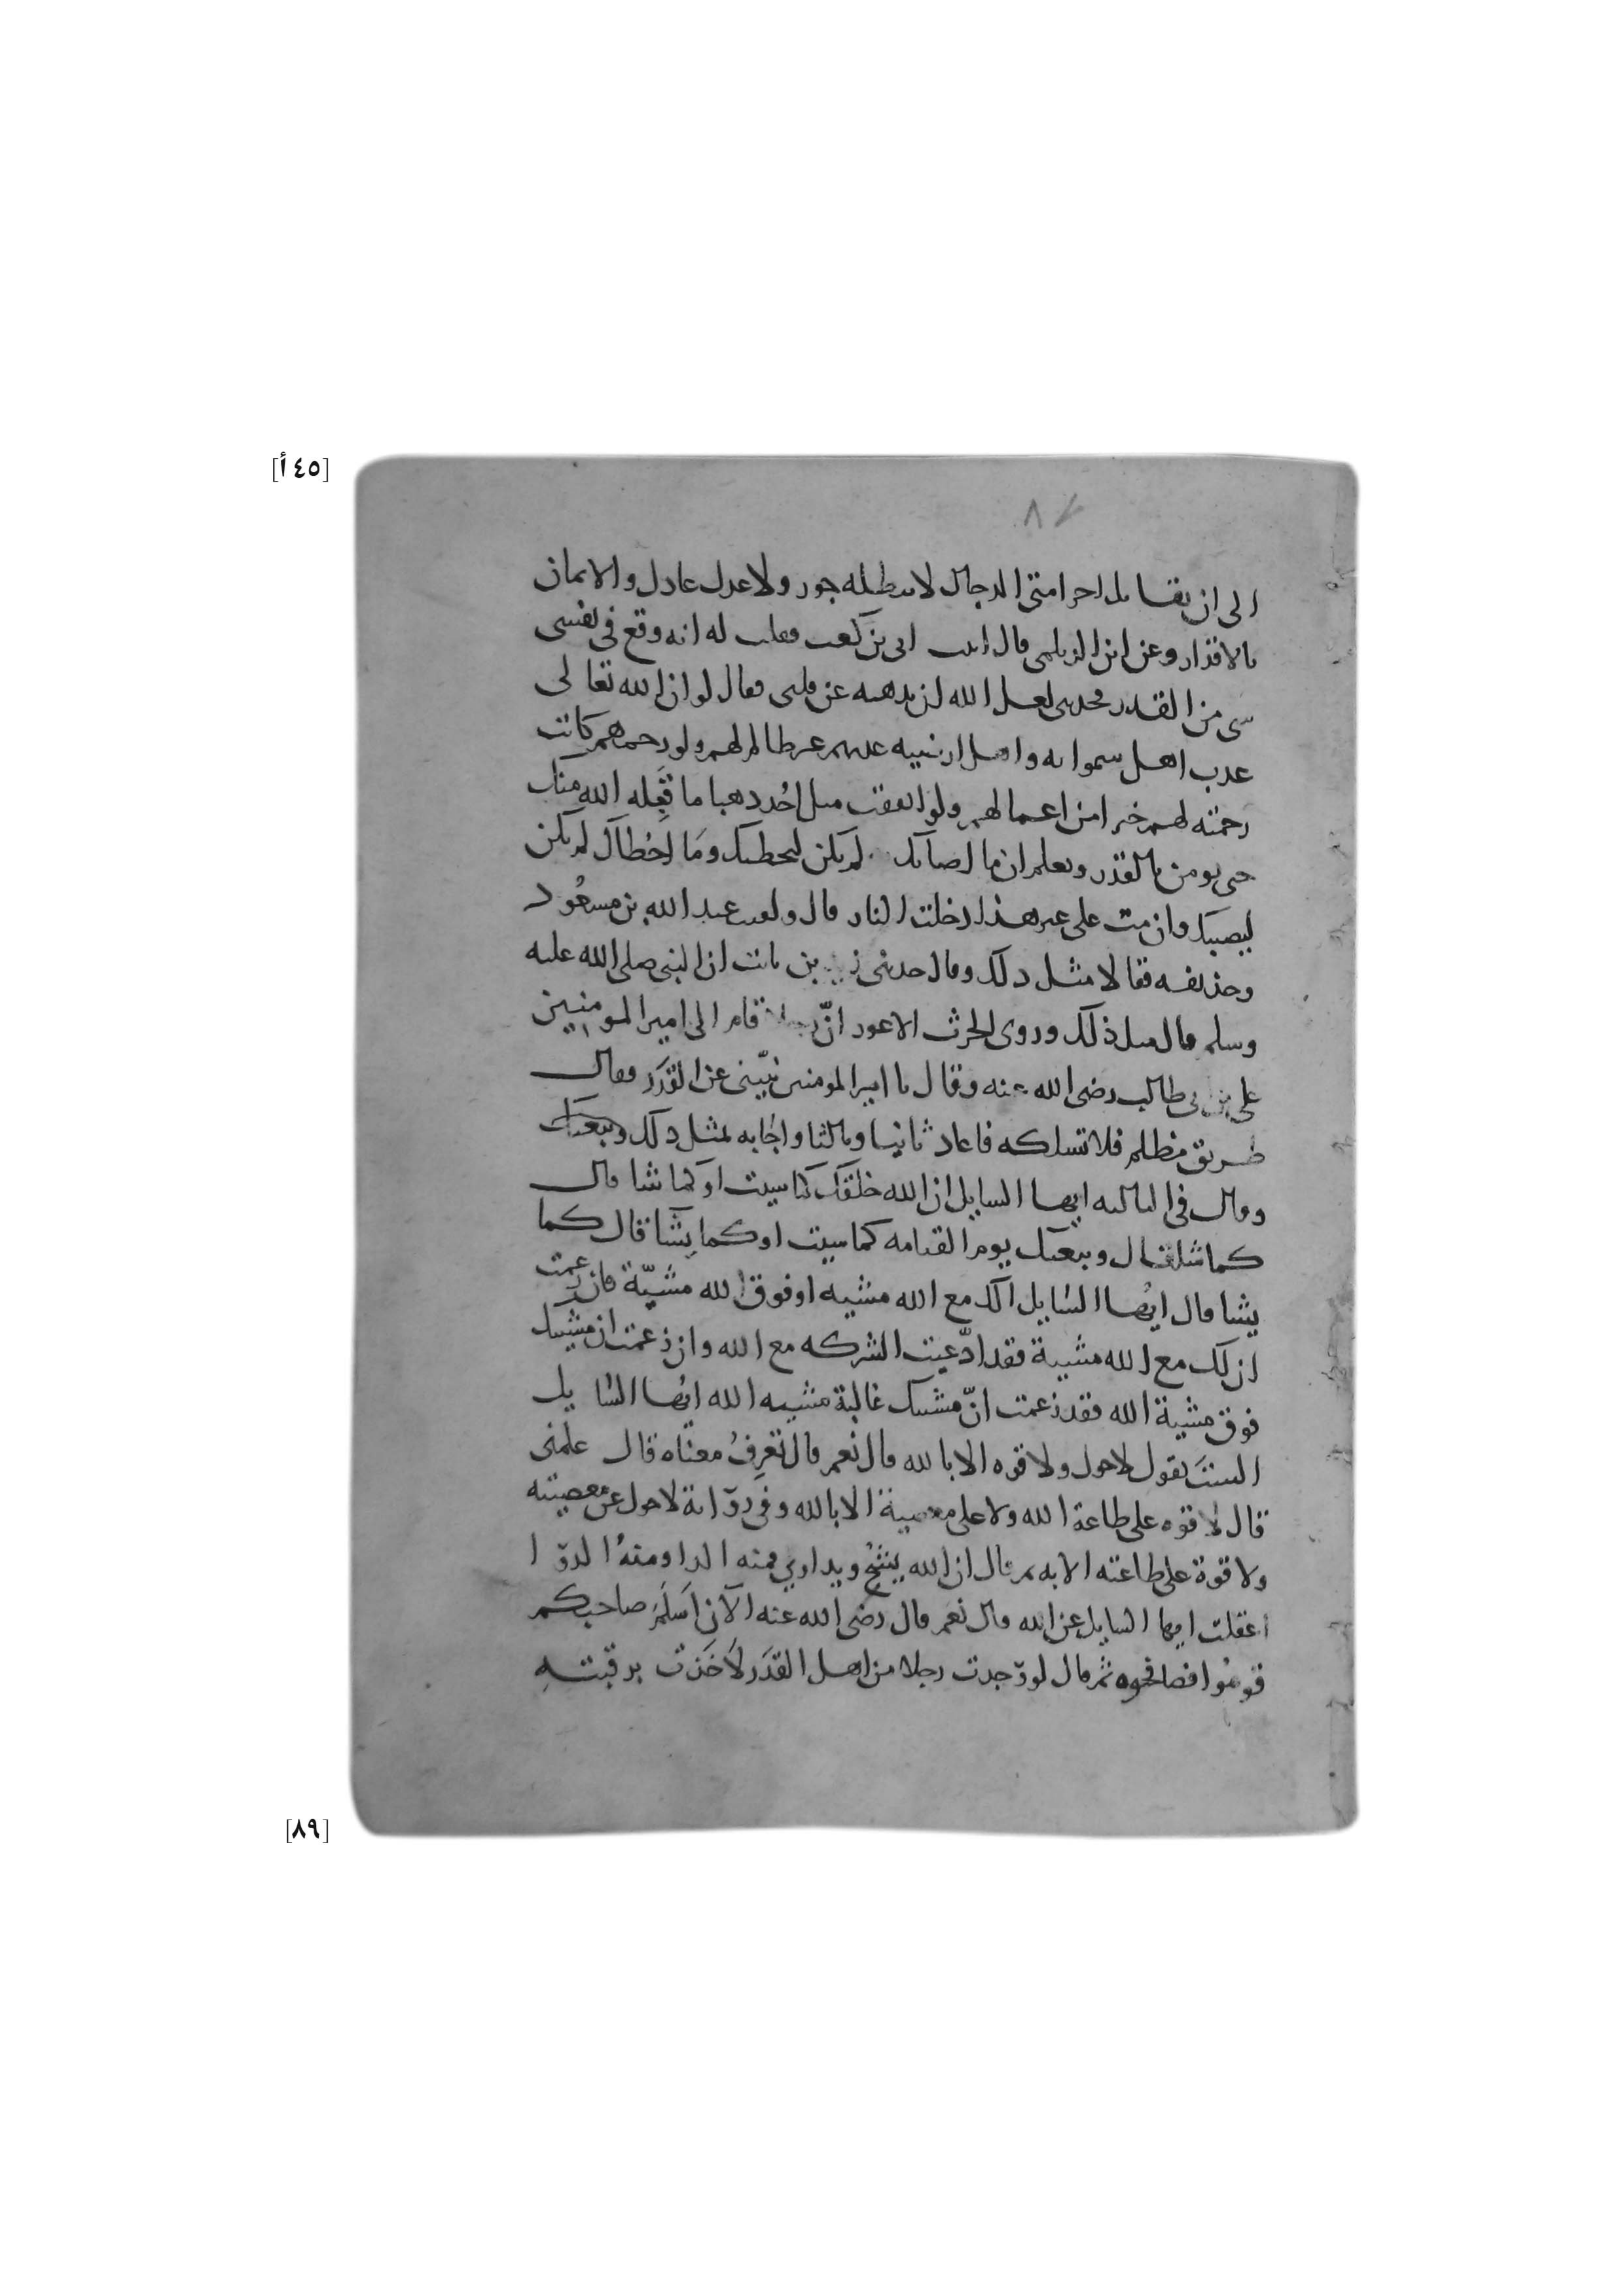 [٤٥ أ]
٨٧
الى ان يقاتل اخر امتى الدجال لا يبطله جور ولا عدل عادل والايمان
بالاقدار وعن ابن الديلمى قال اتيت ابى بن كعب فقلت له انه وقع فى نفسى
شى من القدر فحدثنى لعل الله ان يذهبه عن قلبى فقال لو ان الله تعالى
عذب اهل سمواته واهل ارضيه عذبهم غير ظالم لهم ولو رحمهم كانت
رحمته لهم خيرا من اعمالهم ولو انفقت مثل احُد ذهبا ما قَبِله الله منك
حتى تومن بالقدر وتعلم ان ما اصابك لم يكن ليخطيك وَما اخْطأك لم يكن
ليصيبك وان مت على غير هذا دخلت النار قال ولقيت عبد الله بن مسعُود
وحذيفه فقالا مثل ذلك وقال حدثنى زيد بن ثابت ان النبى صلى الله عليه
وسلم قال مثل ذلك وروى الحرث الاعور انّ رجلا قام الى امير المومنين
على بن ابى طالب رضى الله عنه وقال يا امير المومنين نبّينى عن القَدَر فقال
طريق مظلم فلا تسلكه فاعاد ثانيا وثالثا واجابه بمثل ذلك
وقال فى الثالثه ايها السايل ان الله خلقك كما شيت او كما شا قال
كما شا قال ويبعثك يوم القيامه كما شيت او كما يشَآ قال كما
يشا قال ايُها السّايل الك مع الله مشيه او فوق الله مشيّة فان زعمت
ان لك مع الله مشيية فقد ادّعيت الشركه مع الله وان زعمت ان مشيتك
فوق مشية الله فقد زعمت انّ مشيتك غالبة مشييه الله ايُها السّايل
الستَ تقول لاحول ولا قوه الا بالله قال نعم قال تعَرِفُ معنَاه قال علمنى
قال لا قوه على طاعة الله ولا على معصية الا بالله وفى رواية لاحول عن معصيته
ولا قوة على طاعته الا به ثم قال ان الله يشُجُ ويداوي فمنه الدا ومنهُ الدوا
اعقلت ايها السايل عن الله قال نعم قال رضى الله عنه الآن اَسلَمَ صاحبكم
قومُوا فصافحوه ثم قال لو وجدت رجلا من اهل القَدَر لَاَخَذت برقبتهِ
[٨٩]